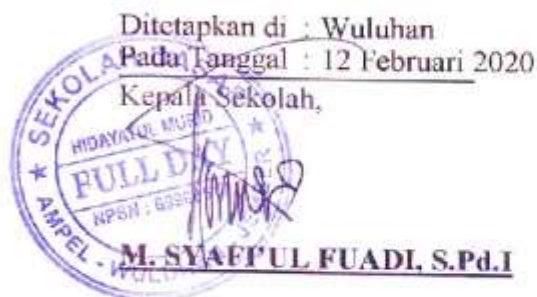 Ditetapkan di : Wuluhan
Pada Tanggal : 12 Februari 2020
Kepala Sekolah,
SEKOLAH
HIDAYATUL MURID
FULL DAY
NPSN :
AMPEL - WULUHAN
M. SYAFI'UL FUADI, S.Pd.I